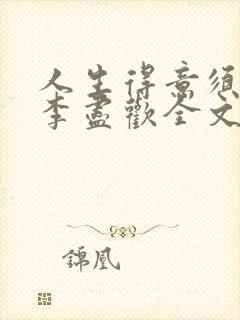 人生得意须
李盡歡全文
錦凰